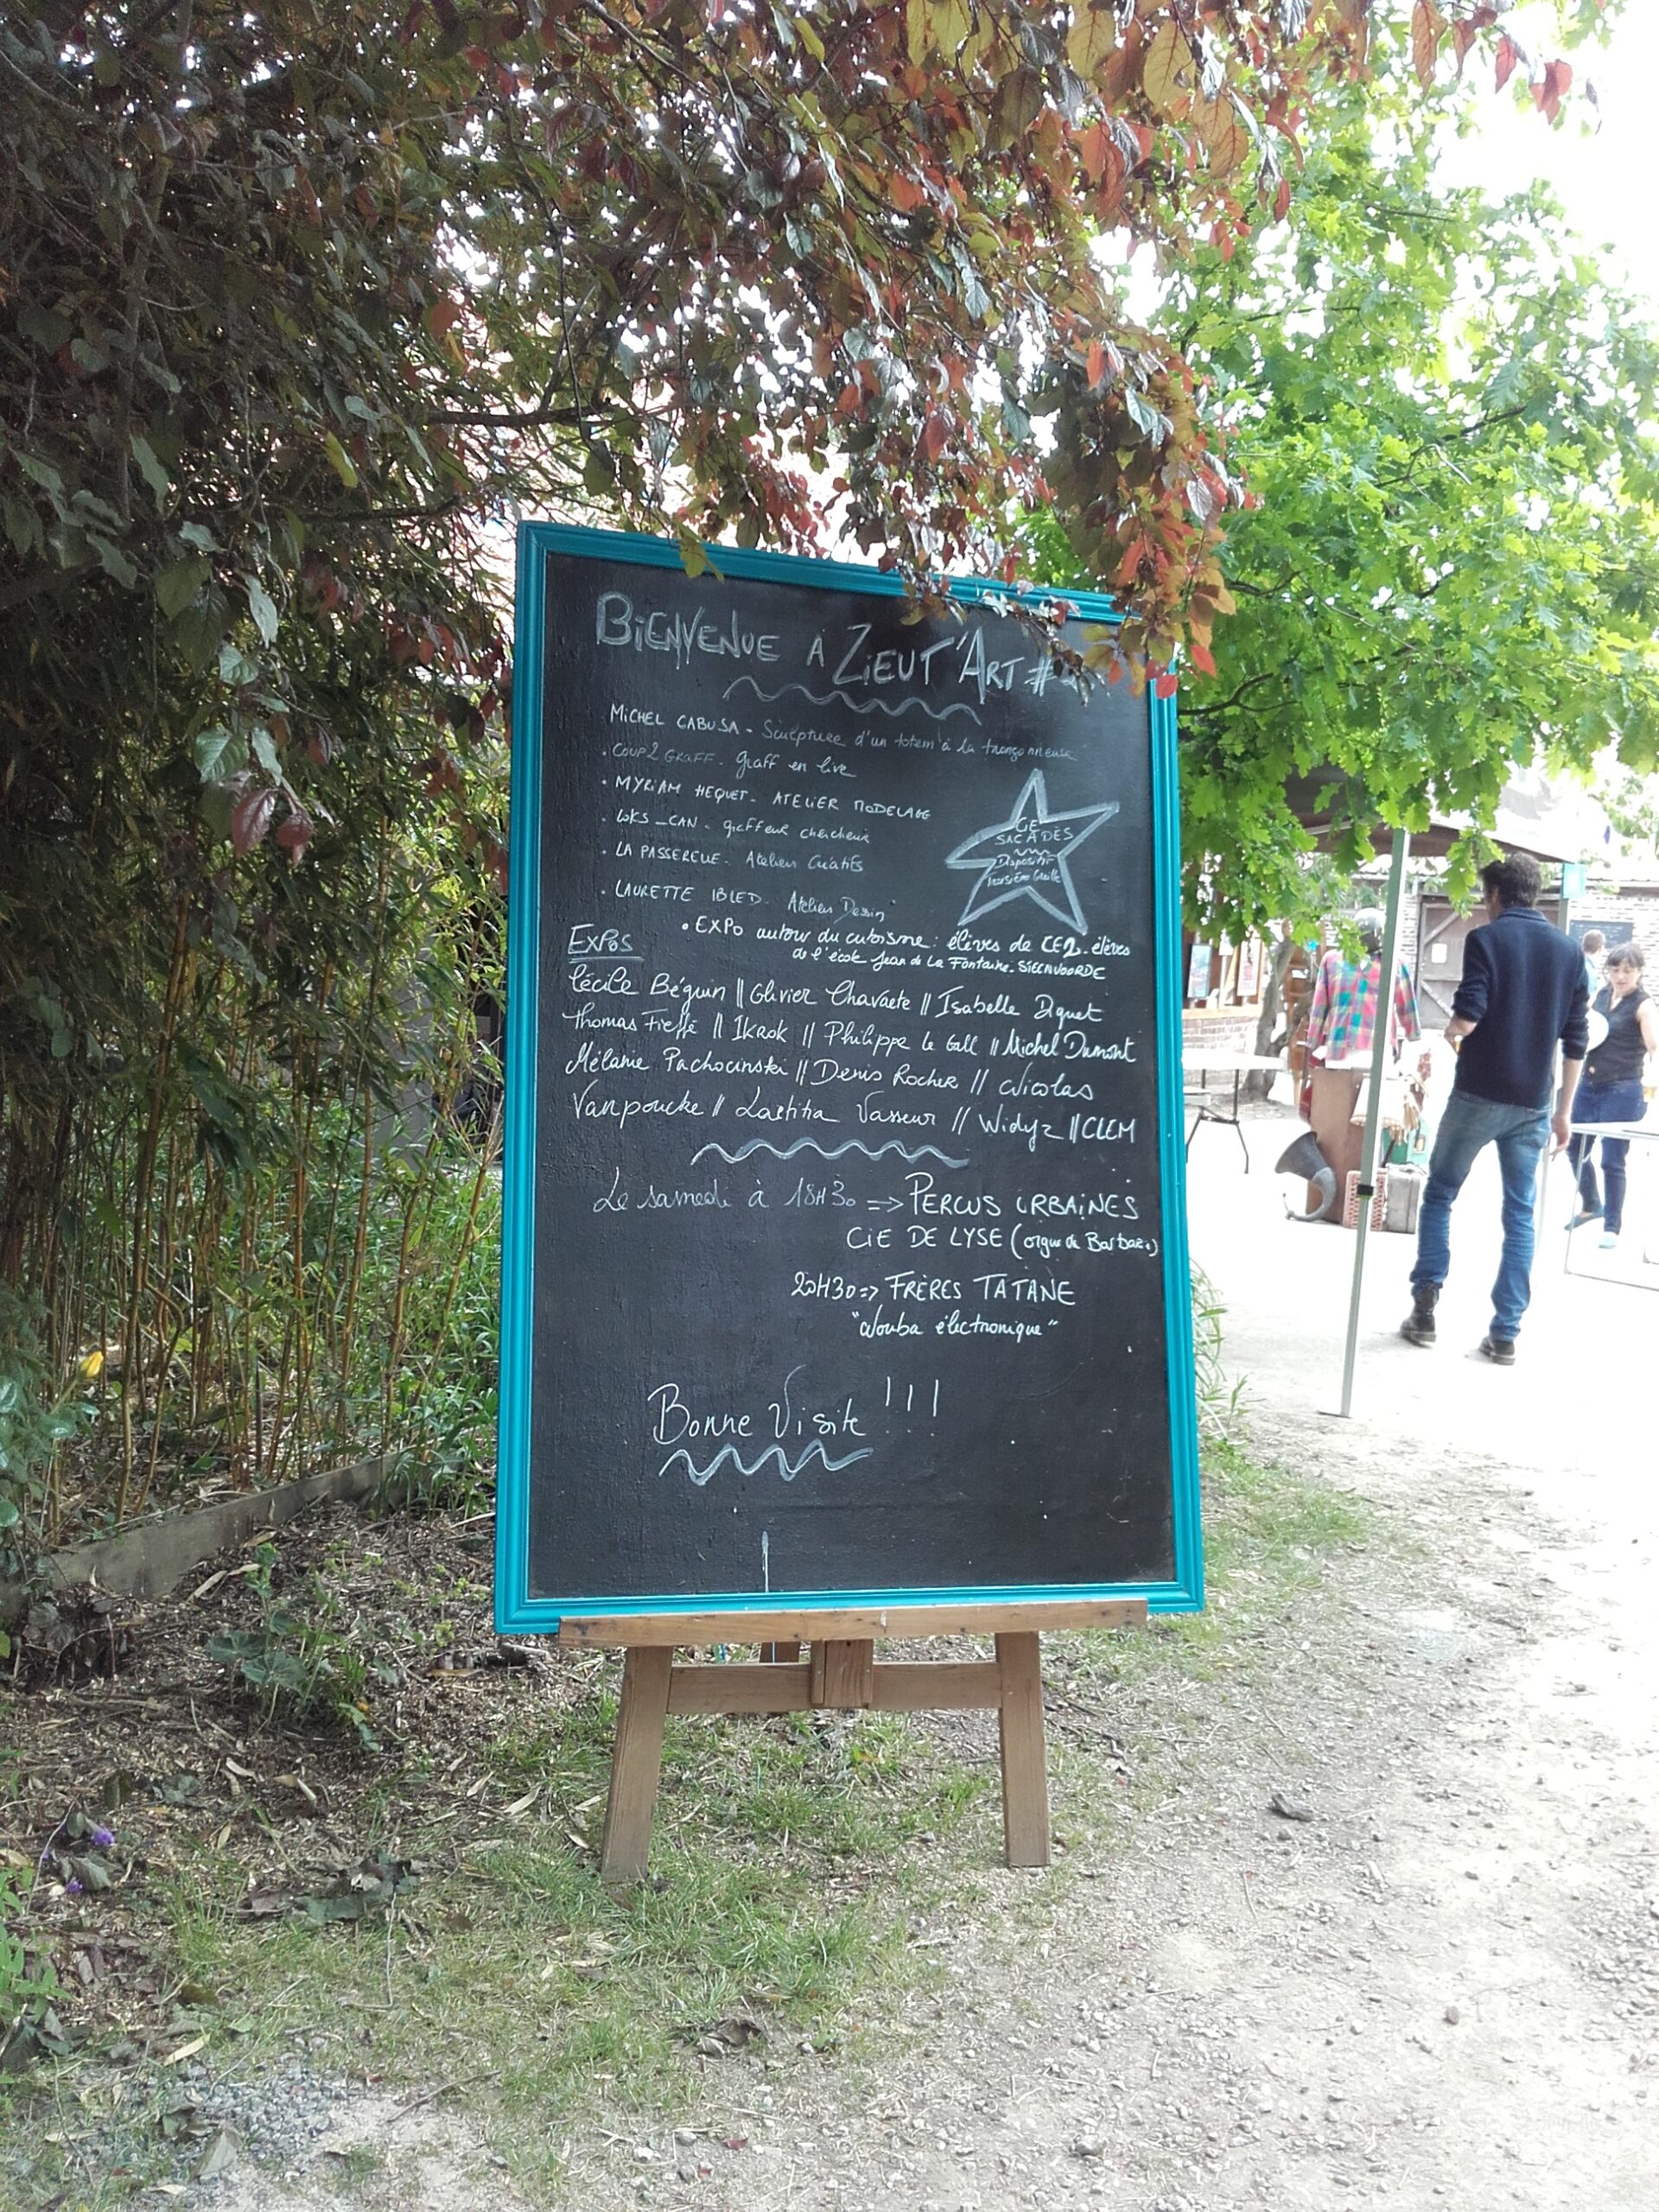 BIENVENUE À ZIEUT'ART #
. MICHEL CABUSA - Sculpture d'un totem à la tronçonneuse
. COUP 2 GRAFF - graff en live
. MYRIAM HEQUET - ATELIER MODELAGE
. LOKS_CAN - graffeur chercheur
. LA PASSERELLE - Ateliers Créatifs
. LAURETTE IBLED - Ateliers Dessin
LE
SAC A DÉS
Dispositif
troisième
EXPOS
• EXPO autour du cuboisme : élèves de CE2 - élèves
de l'école Jean de La Fontaine - STEENVOORDE
Cécile Béguin || Olivier Chavaete // Isabelle Diquet
Thomas Fieffé // Ikrok // Philippe Le Gall // Michel Dumont
Mélanie Pachocinski // Denis Rocher // Nicolas
Vanpoucke // Laetitia Vasseur // Widyz // CLEM
Le samedi à 18H30 => PERCUS URBAINES
CIE DE LYSE (orgue de Barbarie)
20H30 => FRÈRES TATANE
"Wouba électronique"
Bonne Visite !!!